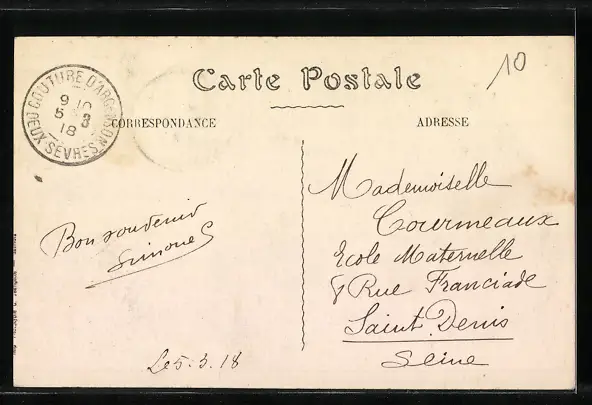 Carte Postale
10
COUTURE D'ARGENSON
9 10
5 3
18
DEUX-SÈVRES
CORRESPONDANCE
ADRESSE
Mademoiselle
Courmeaux
Ecole Maternelle
8 Rue Franciade
Saint Denis
Seine
Bon souvenir
Simone
Le 5.3.18